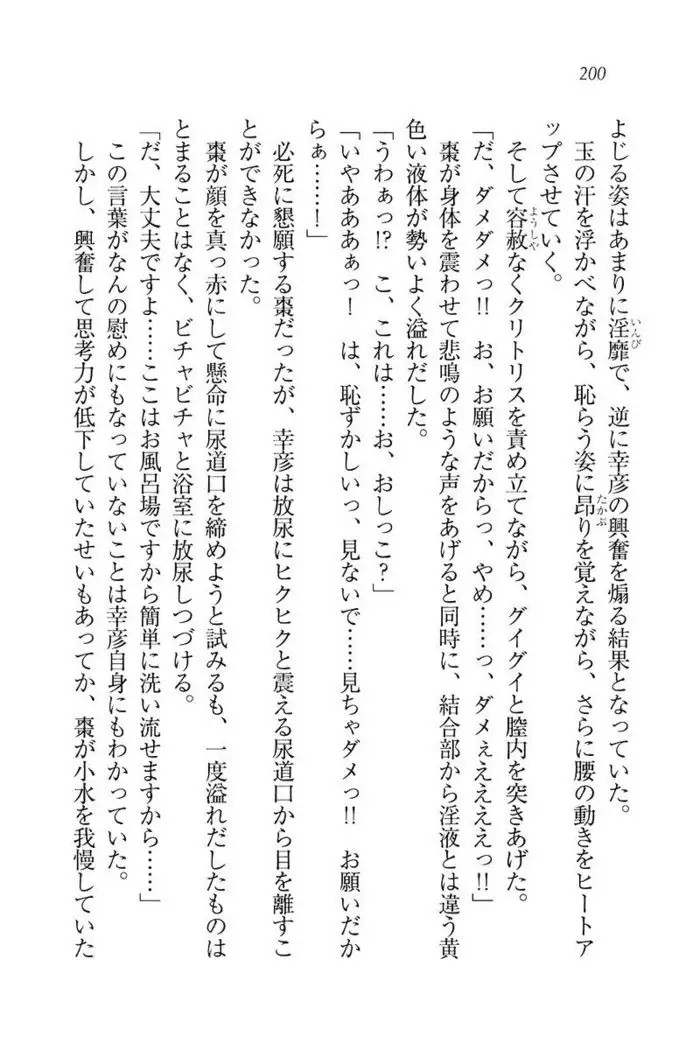 200
よじる姿はあまりに淫靡で、逆に幸彦の興奮を煽る結果となっていた。
玉の汗を浮かべながら、恥らう姿に昂りを覚えながら、さらに腰の動きをヒートア
ップさせていく。
そして容赦なくクリトリスを責め立てながら、グイグイと膣内を突きあげた。
「だ、ダメダメっ!! お、お願いだからっ、やめ……っ、ダメぇえええええっ!!」
棗が身体を震わせて悲鳴のような声をあげると同時に、結合部から淫液とは違う黄
色い液体が勢いよく溢れだした。
「うわぁっ!? こ、これは……お、おしっこ?」
「いやあああぁっ! は、恥ずかしいっ、見ないで……見ちゃダメっ!! お願いだか
らぁ……!」
必死に懇願する棗だったが、幸彦は放尿にヒクヒクと震える尿道口から目を離すこ
とができなかった。
棗が顔を真っ赤にして懸命に尿道口を締めようと試みるも、一度溢れだしたものは
とまることはなく、ビチャビチャと浴室に放尿しつづける。
「だ、大丈夫ですよ……ここはお風呂場ですから簡単に洗い流せますから……」
この言葉がなんの慰めにもなっていないことは幸彦自身にもわかっていた。
しかし、興奮して思考力が低下していたせいもあってか、棗が小水を我慢していた